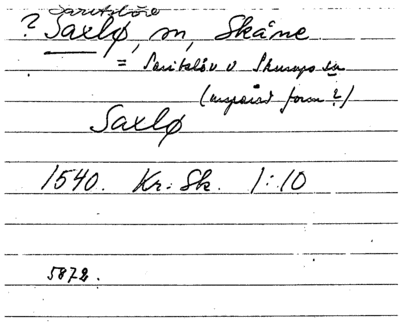 Saritslöv
? Saxlø, m, Skåne
= Saritslöv v Skurups sn
( form ?)
Saxlø
1540. Kr: Sk. 1:10
5872.